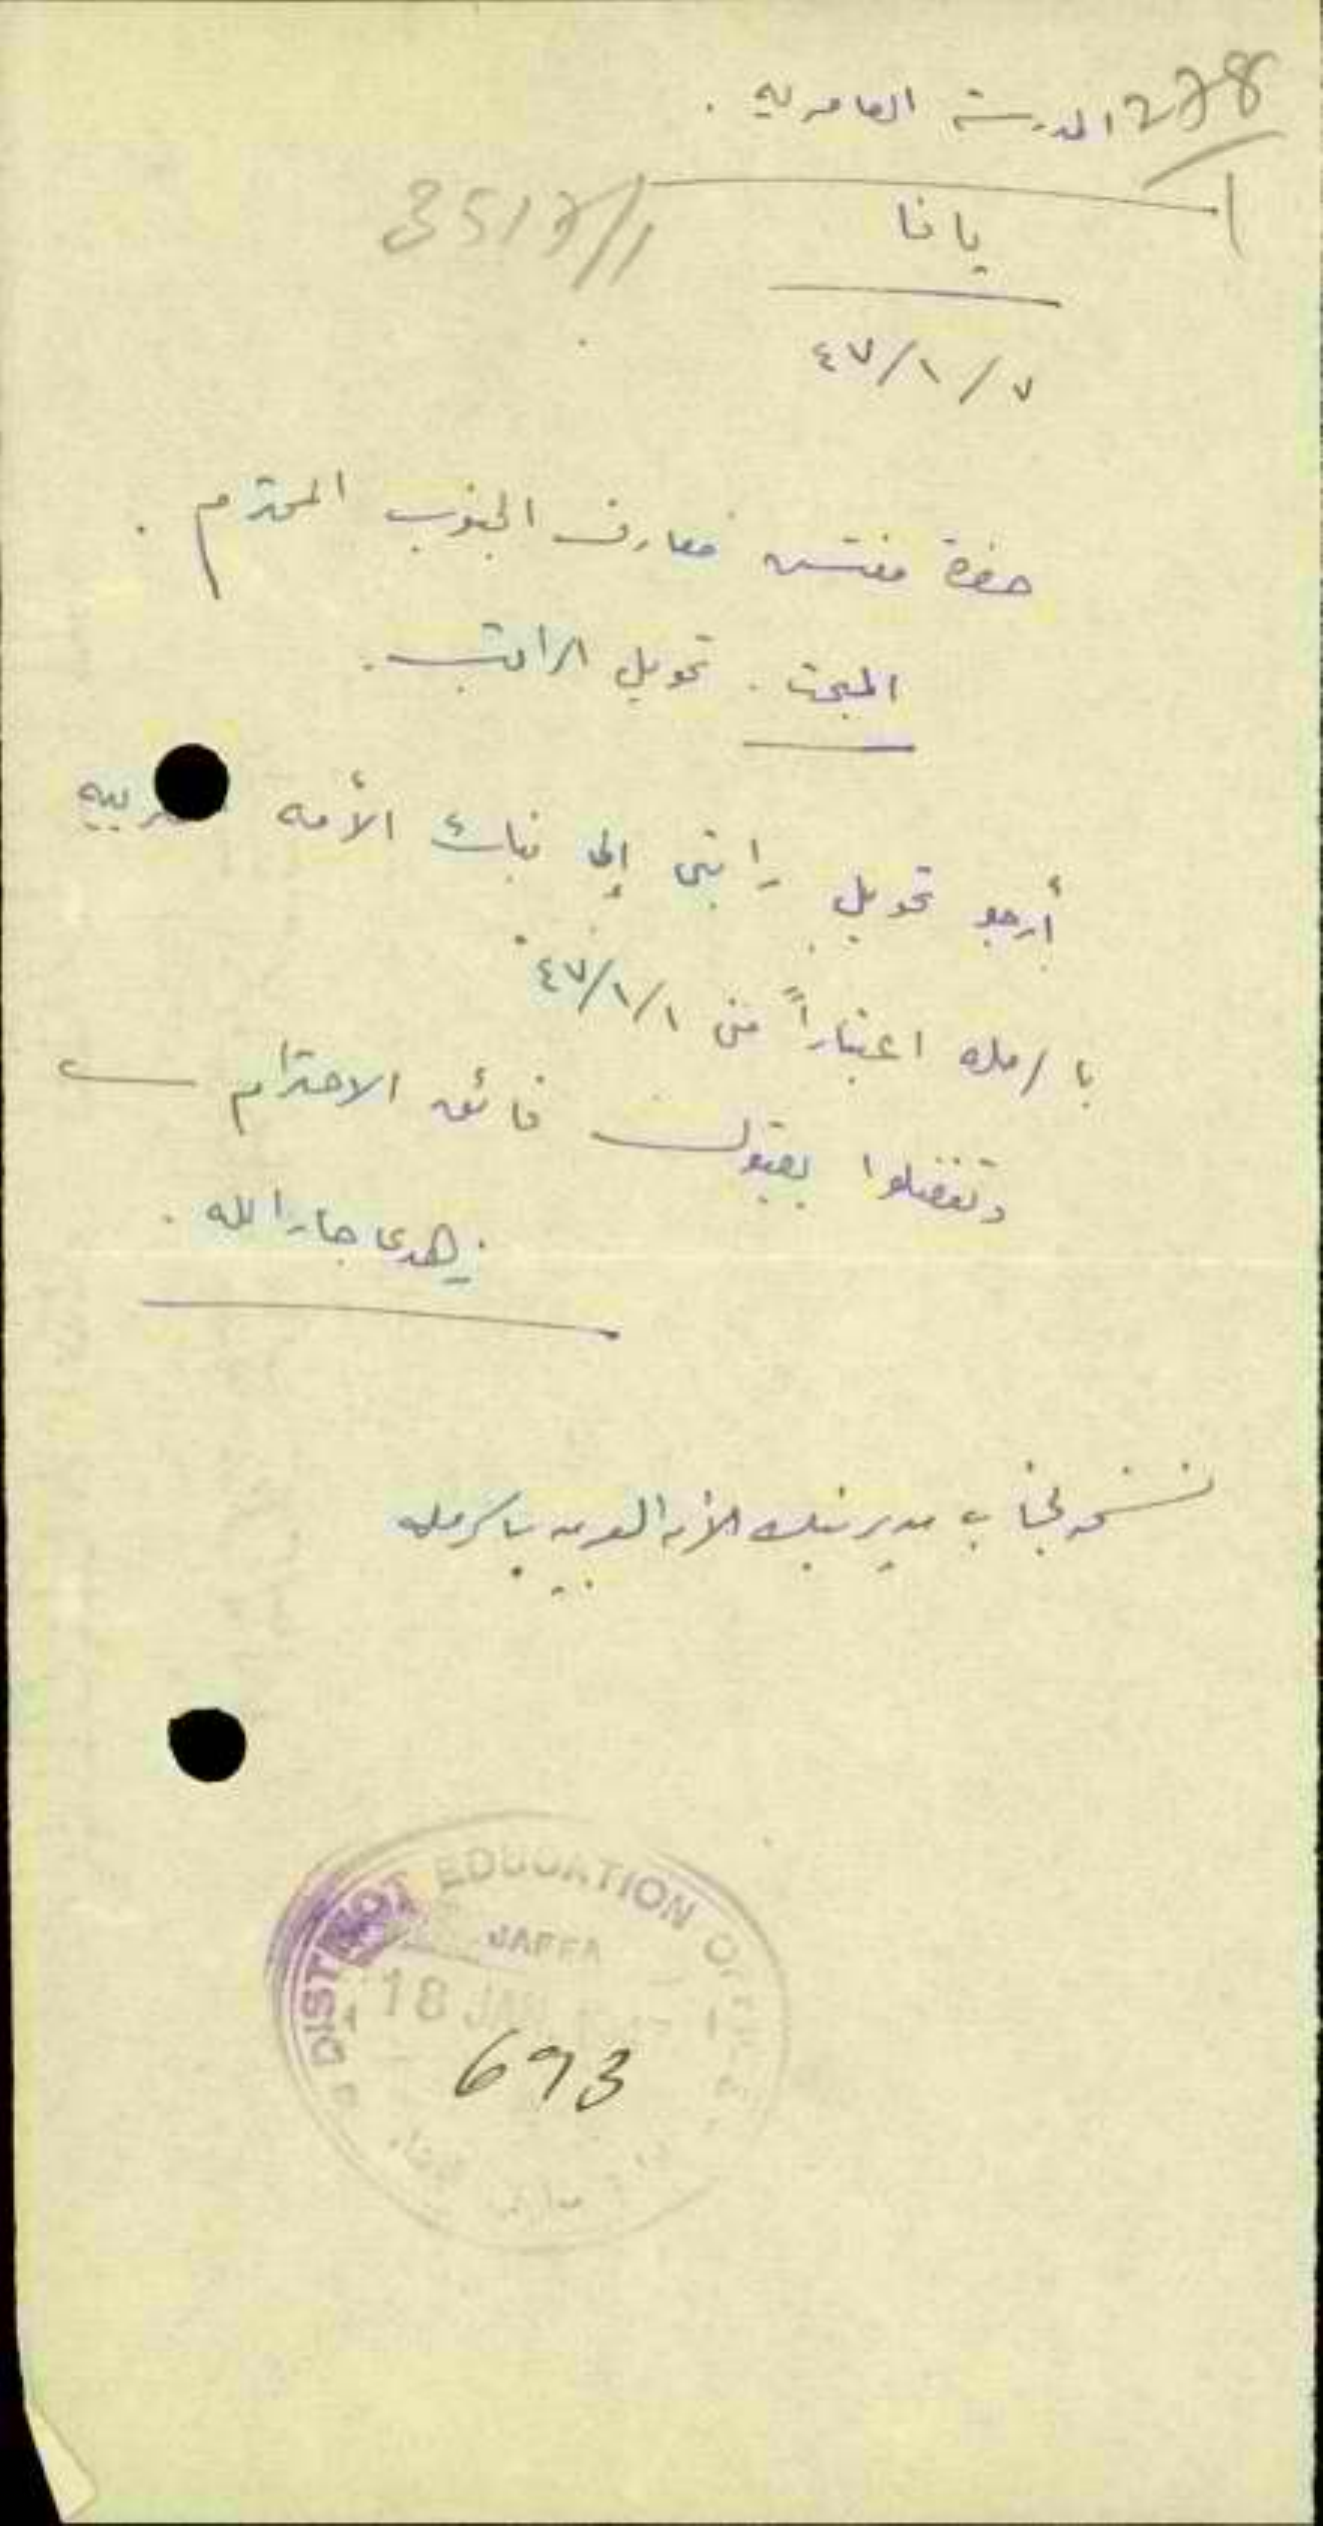 278
المدرسة العامرية .
3517/1
يافا
٤٧/١/٧
حضرة مفتش معارف الجنوب المحترم .
المبحث . تحويل الراتب .
أرجو تحويل راتبي إلى بنك الأمه العربيه
بالرمله اعتباراً من ٤٧/١/١
وتفضلوا بقبول فائق الاحترام
زهدي جارالله .
نسخه لجناب مدير بنك الأمه العربيه بالرمله
DISTRICT EDUCATION OFFICE
JAFFA
18 JAN
693